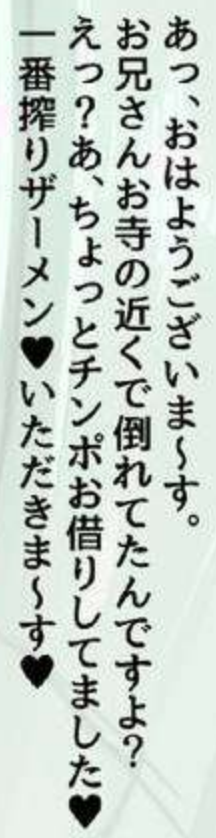 あっ、おはようございま～す。
お兄さんお寺の近くで倒れてたんですよ？
えっ？あ、ちょっとチンポお借りしてました♥
一番搾りザーメン♥いただきま～す♥